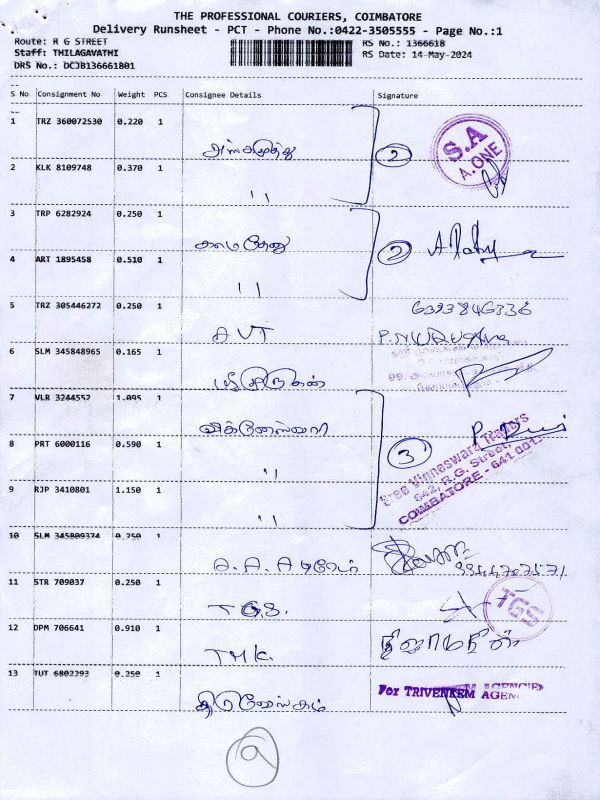 THE PROFESSIONAL COURIERS, COIMBATORE
Delivery Runsheet - PCT - Phone No.:0422-3505555 - Page No.:1
Route: R G STREET RS No.: 1366618
Staff: THILAGAVATHI RS Date: 14-May-2024
DRS No.: DCJB136661801
S No Consignment No Weight PCS Consignee Details Signature
1 TRZ 360072530 0.220 1
S.A
A.ONE
2
2 KLK 8109748 0.370 1
"
3 TRP 6282924 0.250 1
காமதேனு
2
4 ART 1895458 0.510 1
"
5 TRZ 305446272 0.250 1
6393846336
AVT P.MURUGAN
6 SLM 345848965 0.165 1
7 VLR 3244552 1.095 1
விக்னேஸ்வரி
Sree Vigneswara Traders
8 PRT 6000116 0.590 1
3
642, R.G. Street,
" COIMBATORE - 641 001.
9 RJP 3410801 1.150 1
"
10 SLM 345809374 0.250 1
A.A.A
11 STR 709037 0.250 1
T G S. TGS
12 DPM 706641 0.910 1
TMK.
13 TUT 6802293 0.250 1
For TRIVENKEM AGEN
9